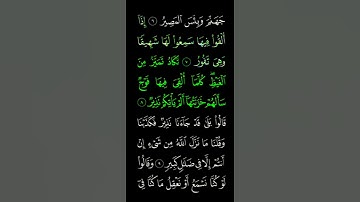 جَهَنَّمَ وَبِئْسَ ٱلْمَصِيرُ ٦ إِذَآ
أُلْقُوا۟ فِيهَا سَمِعُوا۟ لَهَا شَهِيقًا
وَهِىَ تَفُورُ ٧ تَكَادُ تَمَيَّزُ مِنَ
ٱلْغَيْظِ كُلَّمَآ أُلْقِىَ فِيهَا فَوْجٌ
سَأَلَهُمْ خَزَنَتُهَآ أَلَمْ يَأْتِكُمْ نَذِيرٌ ٨
قَالُوا۟ بَلَىٰ قَدْ جَآءَنَا نَذِيرٌ فَكَذَّبْنَا
وَقُلْنَا مَا نَزَّلَ ٱللَّهُ مِن شَىْءٍ إِنْ
أَنتُمْ إِلَّا فِى ضَلَٰلٍ كَبِيرٍ ٩ وَقَالُوا۟
لَوْ كُنَّا نَسْمَعُ أَوْ نَعْقِلُ مَا كُنَّا فِىٓ